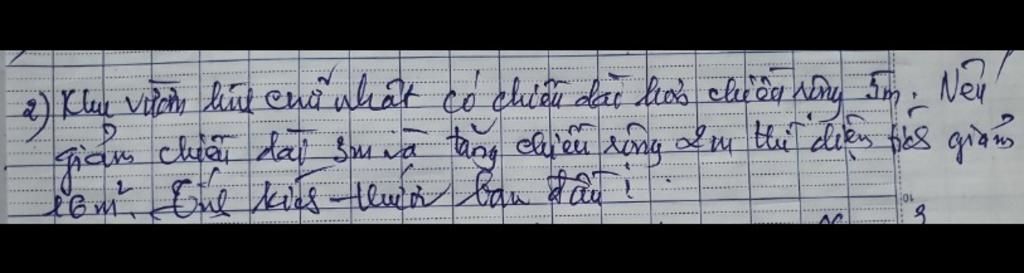 2) Khu vườn hình chữ nhật có chiều dài hơn chiều rộng 5m. Nếu
giảm chiều dài 3m và tăng chiều rộng 2m thì diện tích giảm
16m². Tính kích thước ban đầu!